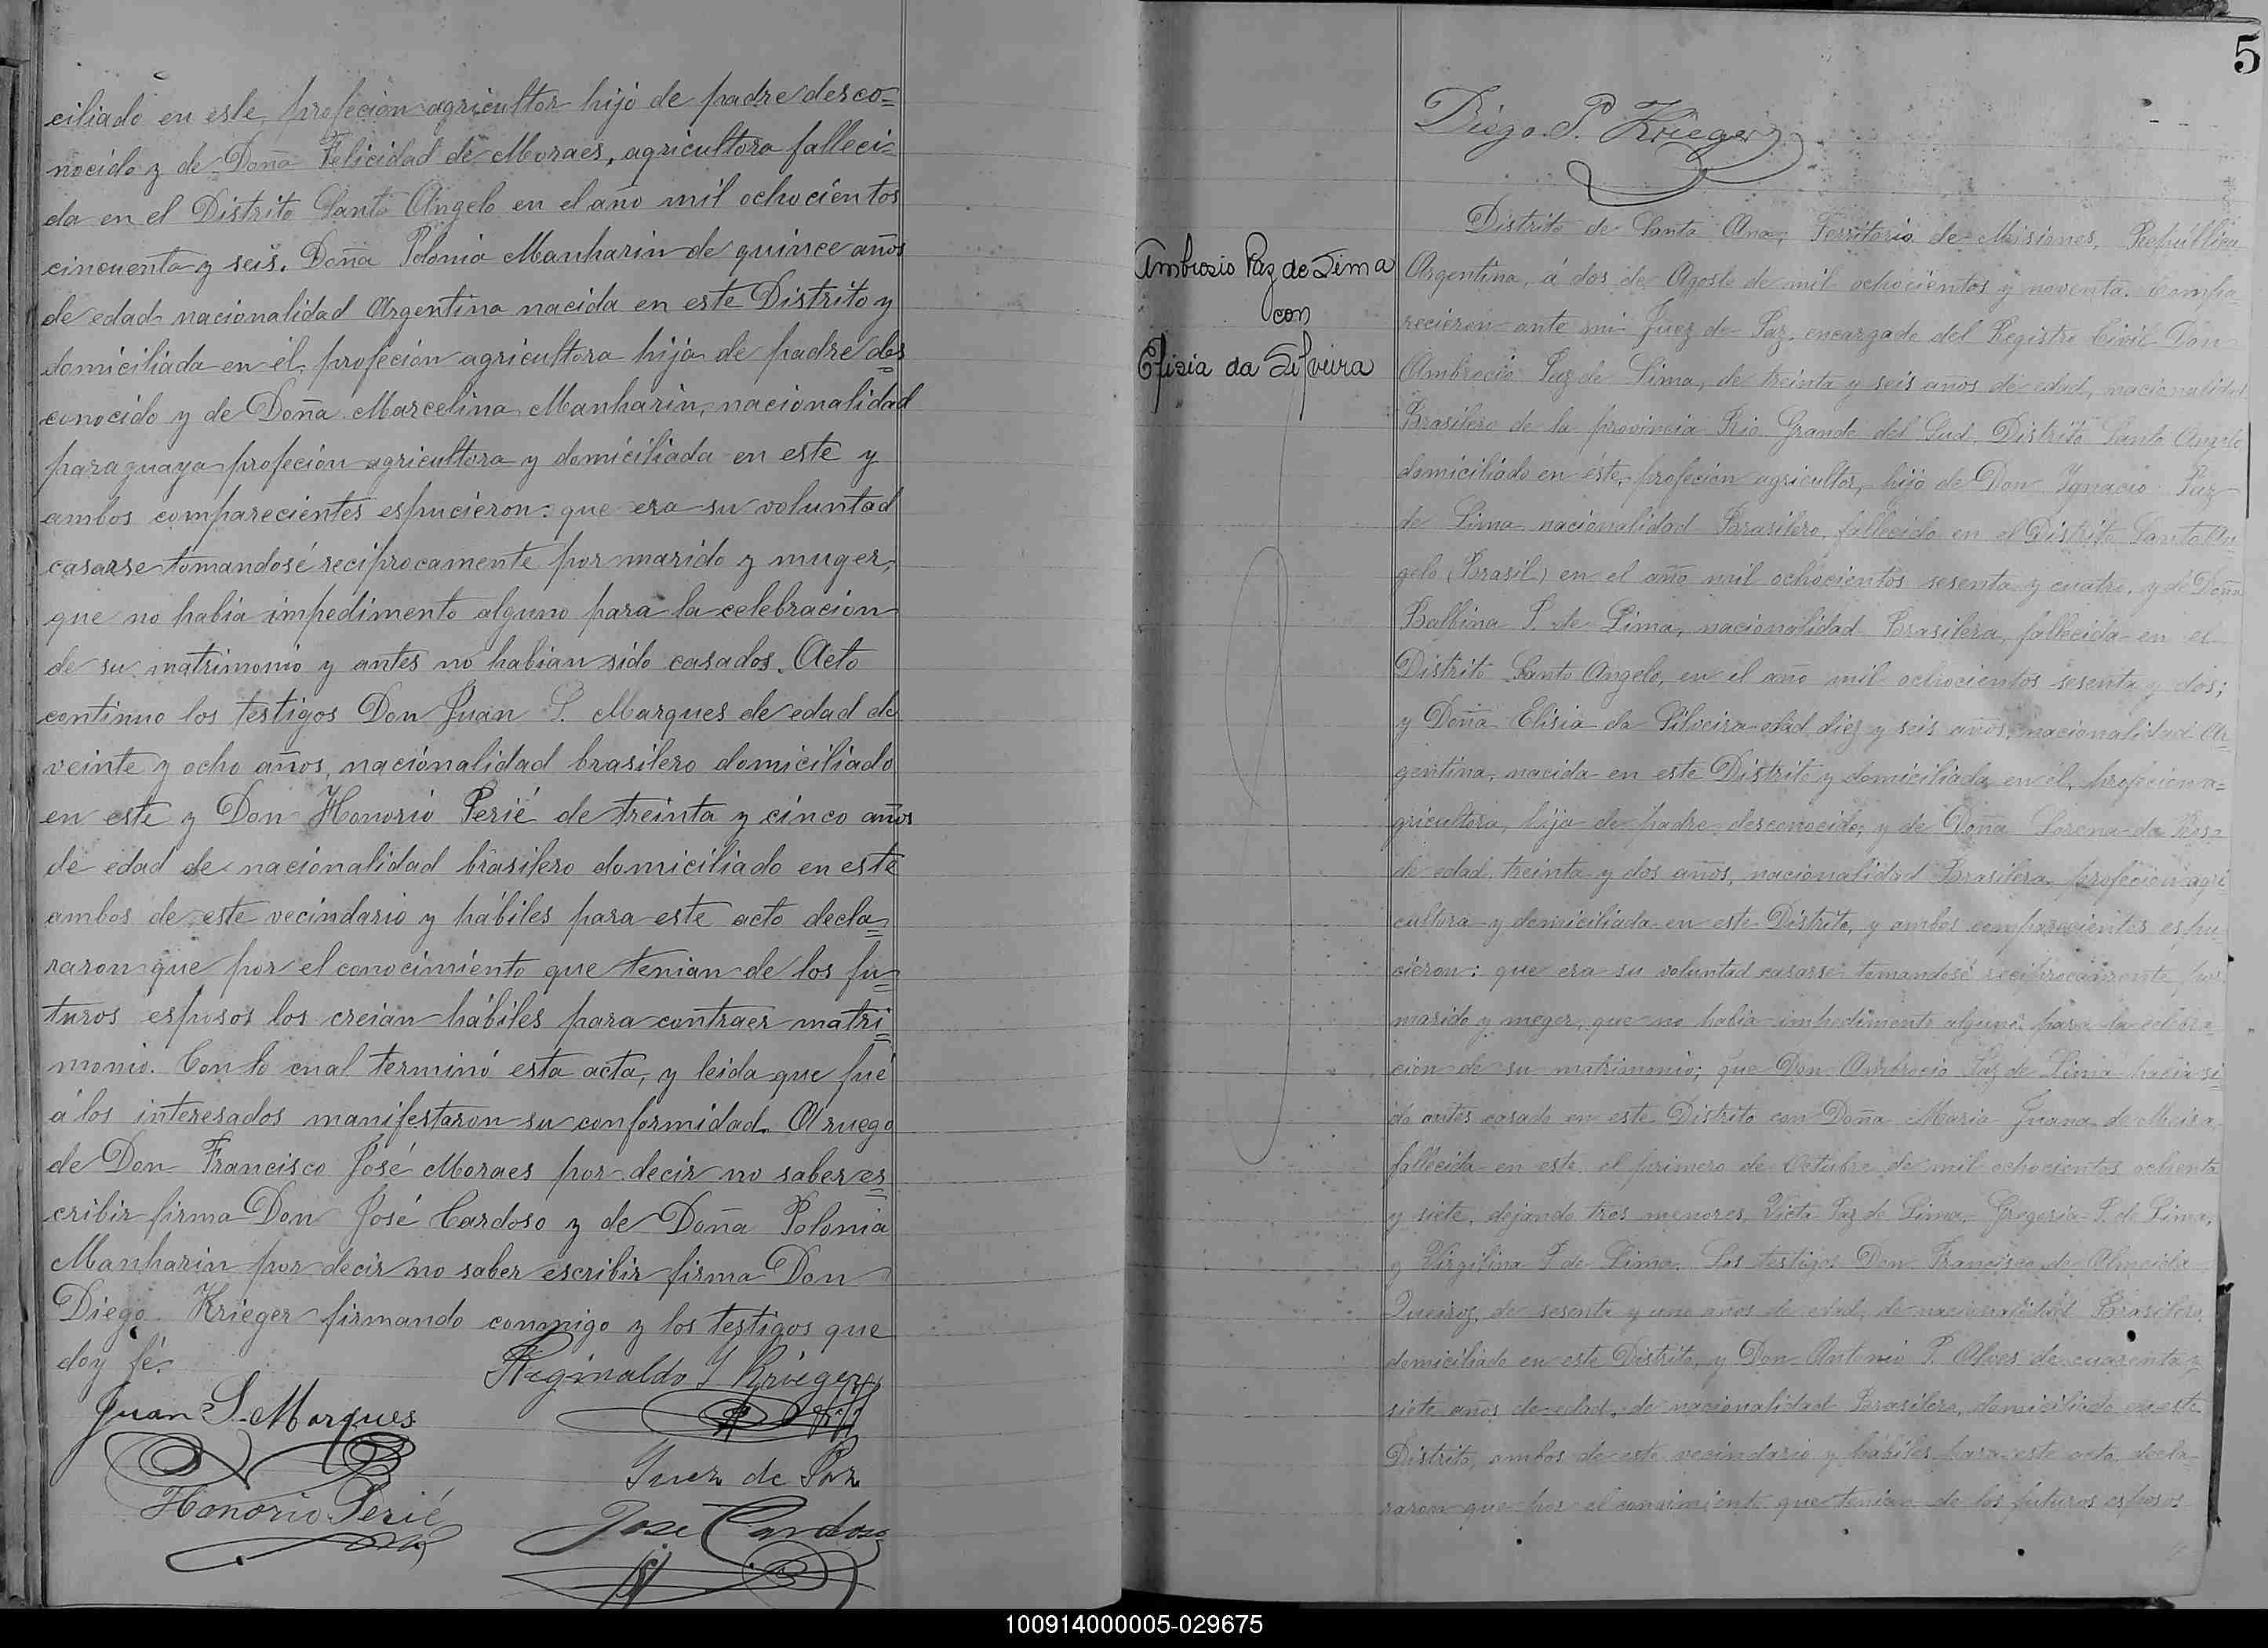 ciliado en este, profecion agricultor hijo de padre desco=
nocido y de Doña Felicidad de Moraes, agricultora falleci=
da en el Distrito Santo Angelo en el año mil ochocientos
cincuenta y seis. Doña Polonia Manharin de quince años
de edad nacionalidad Argentina nacida en este Distrito y
domiciliada en él, profeción agricultora hija de padre des=
conocido y de Doña Marcelina Manharin, nacionalidad
paraguaya profeción agricultora y domiciliada en este y
ambos comparecientes espucieron: que era su voluntad
casarse tomandosé reciprocamente por marido y muger,
que no habia impedimento alguno para la celebracion
de su matrimonio y antes no habian sido casados. Acto
continuo los testigos Don Juan S. Marques de edad de
veinte y ocho años, nacionalidad brasilero domiciliado
en este y Don Honorio Perié de treinta y cinco años
de edad de nacionalidad brasilero domiciliado en este
ambos de este vecindario y hábiles para este acto decla=
raron que por el conocimiento que tenian de los fu=
turos esposos los creian hábiles para contraer matri=
monio. Con lo cual terminó esta acta, y leida que fué
á los interesados manifestaron su conformidad. A ruego
de Don Francisco José Moraes por decir no saber es=
cribir firma Don José Cardoso y de Doña Polonia
Manharin por decir no saber escribir firma Don
Diego Krieger firmando conmigo y los testigos que
doy fé.
Reginaldo Y Krieger
Juan S. Marques
Juez de Paz
Honorio Perié
Jose Cardoso
5
Diego P. Krieger
Ambrosio Paz de Lima
con
Elisia da Silveira
Distrito de Santa Ana, Territorio de Misiones, República
Argentina, á dos de Agosto de mil ochocientos y noventa. compa
recieron ante mi Juez de Paz, encargado del Registro Civil Don
Ambrocio Paz de Lima, de treinta y seis años de edad, nacionalidad
Brasilero de la provincia Rio Grande del Sud, Distrito Santo Angelo
domiciliado en éste, profecion agricultor, hijo de Don Ygnacio Paz
de Lima nacionalidad Brasilero, fallecido en el Distrito Santo An=
gelo (Brasil) en el año mil ochocientos sesenta y cuatro, y de Doña
Balbina P. de Lima, nacionalidad Brasilera, fallecida en el
Distrito Santo Angelo, en el año mil ochocientos sesenta y dos;
y Doña Elisia da Silveira edad diez y seis años, nacionalidad Ar=
gentina, nacida en este Distrito y domiciliada en él, profecion a=
gricultora, hija de padre desconocido, y de Doña Lorena da
de edad treinta y dos años, nacionalidad Brasilera, profecion agri
cultora y domiciliada en este Distrito, y ambos comparecientes espu
cieron: que era su voluntad casarse tomandosé reciprocamente por
marido y meger, que no habia impedimento alguno para la celebra
cion de su matrimonio; que Don Ambrocio Paz de Lima habia si=
do antes casado en este Distrito con Doña Maria Juana de Meira,
fallecida en este el primero de Octubre de mil ochocientos ochenta
y siete, dejando tres menores, Victa Paz de Lima, Gregoria P. de Lima,
y Virgilina P. de Lima. Los testigos Don Francisco de Almeida
Queiroz, de sesenta y uno años de edad, de nacionalidad Brasilero,
domiciliado en este Distrito, y Don Antonio P. Alves de cuarenta y
siete años de edad, de nacionalidad Brasilero, domiciliado en este
Distrito, ambos de este vecindario y hábiles para este acto, decla=
raron que por el conocimiento que tenian de los futuros esposos
100914000005-029675